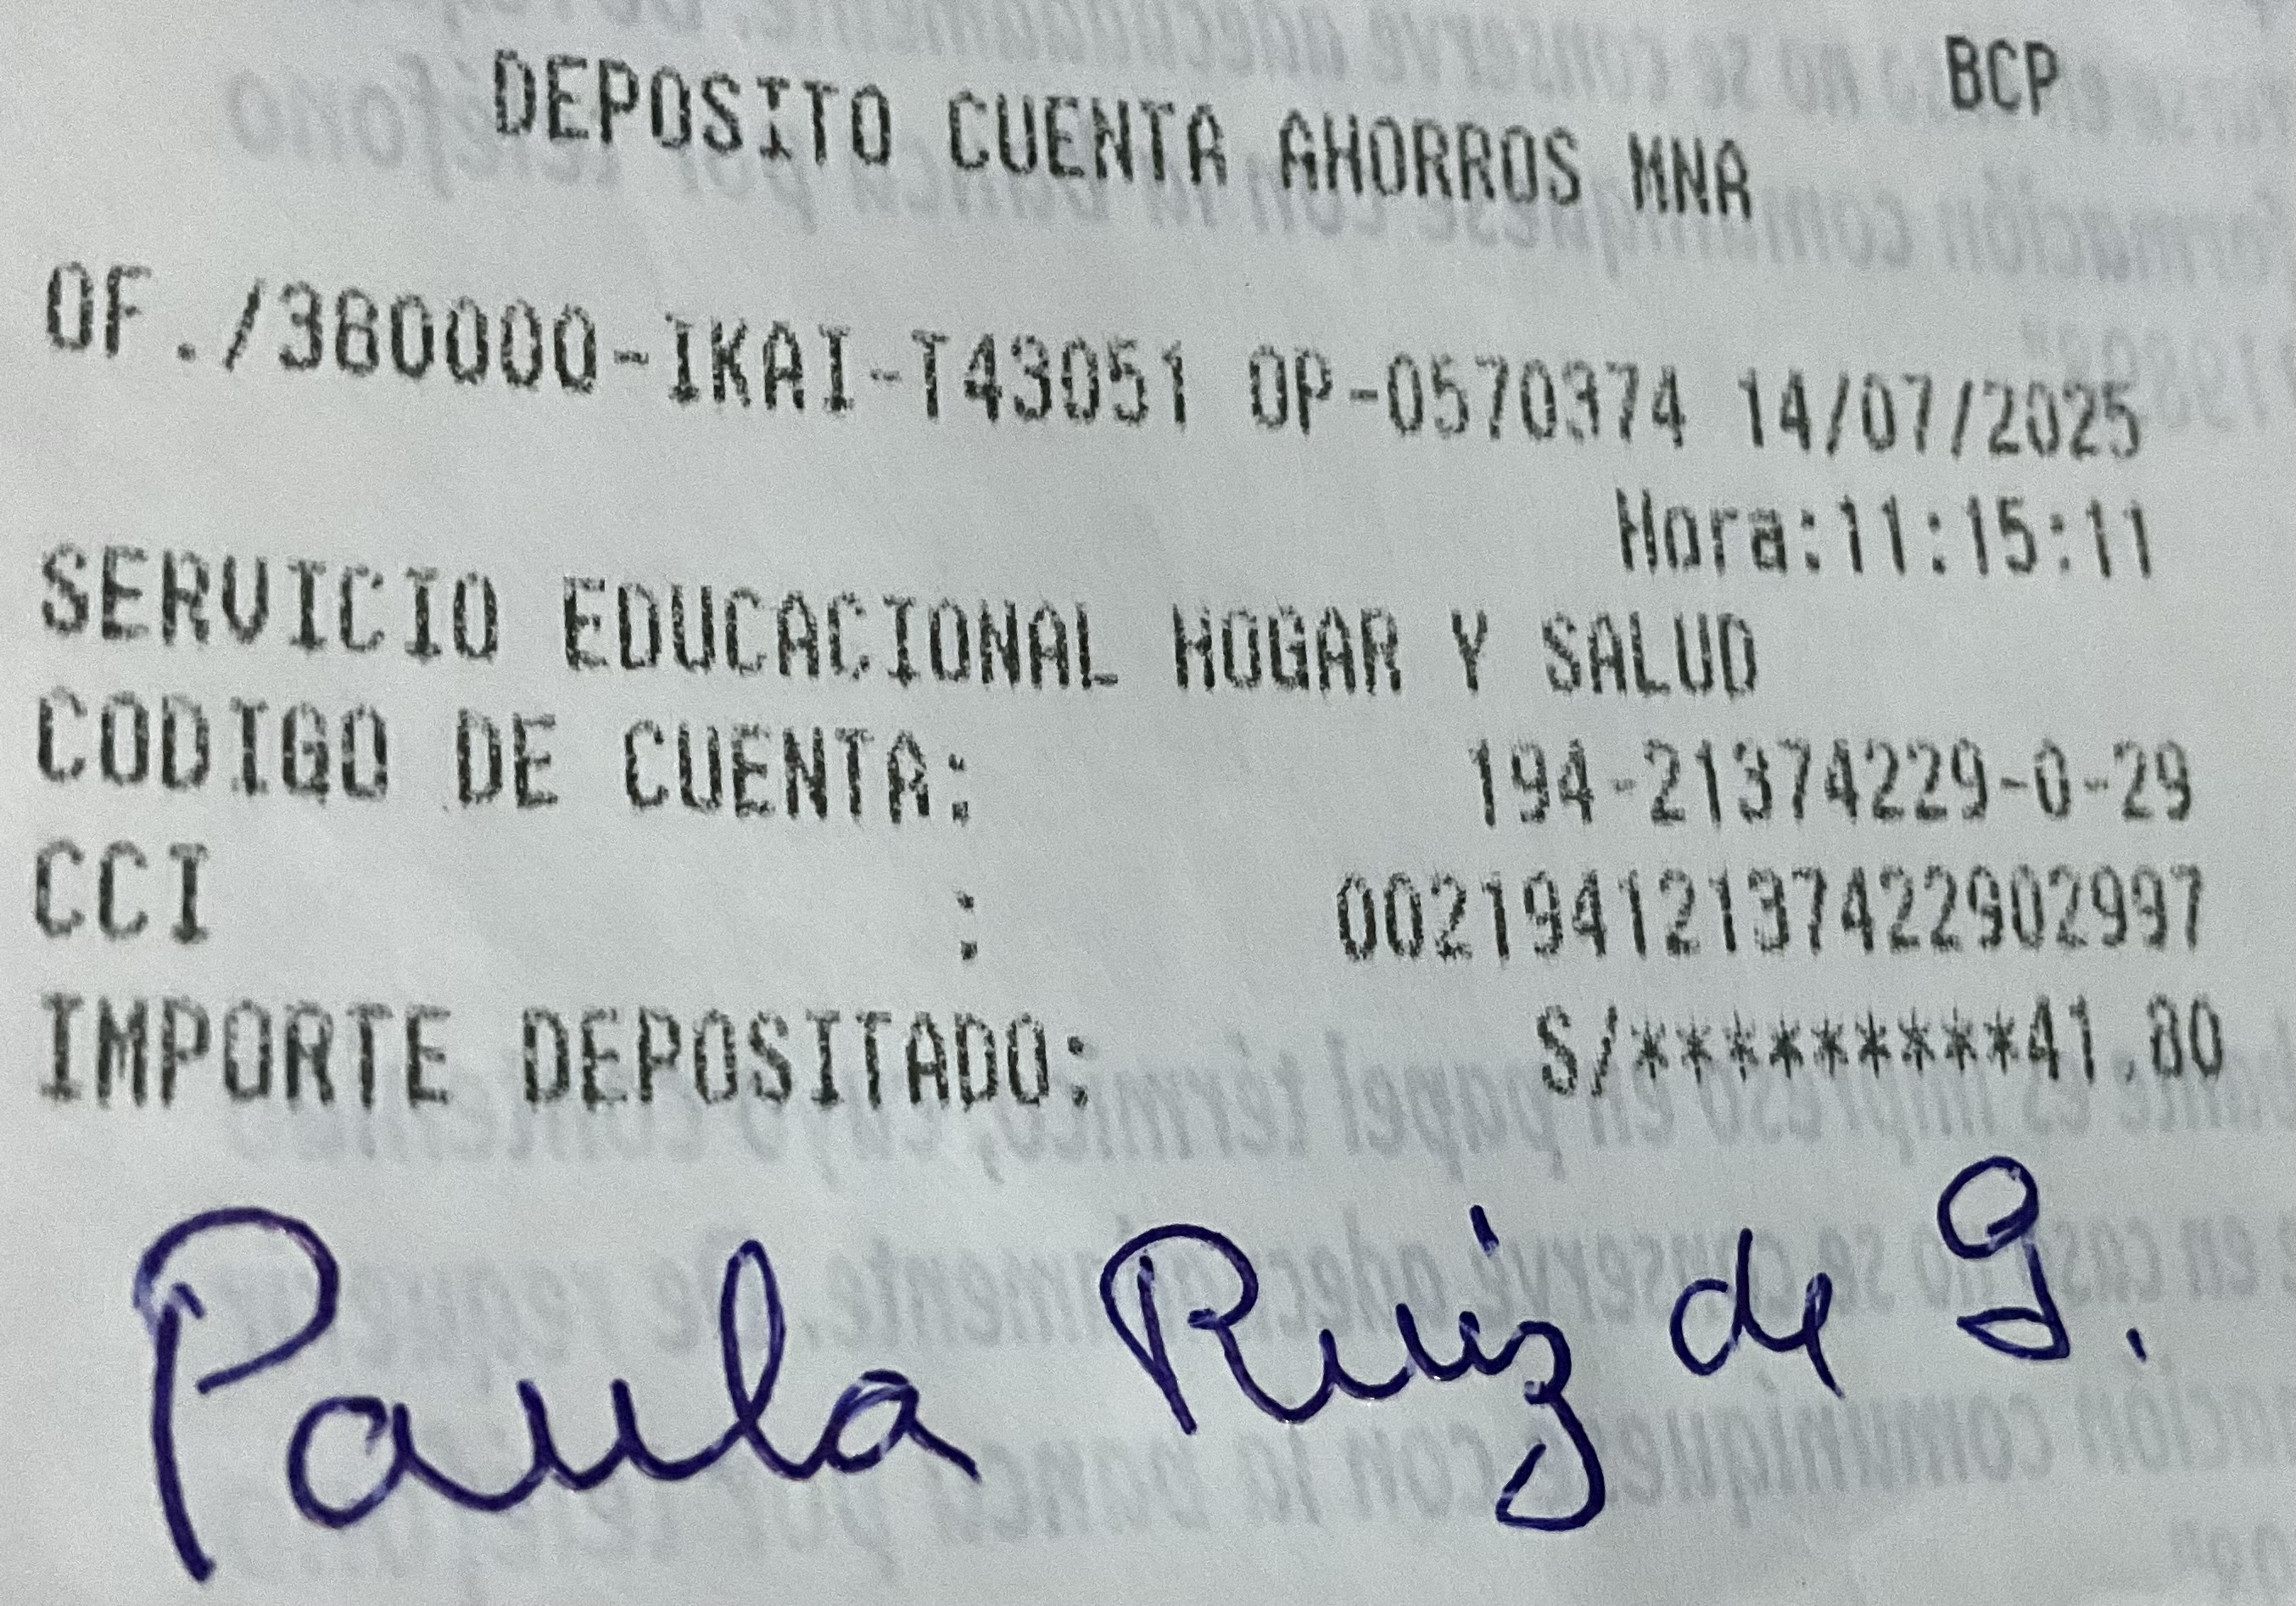 BCP
DEPOSITO CUENTA AHORROS MNA
OF./380000-IKAI-T43051 OP-0570374 14/07/2025
Hora:11:15:11
SERVICIO EDUCACIONAL HOGAR Y SALUD
CODIGO DE CUENTA: 194-21374229-0-29
CCI : 00219412137422902997
IMPORTE DEPOSITADO: S/*********41.80
Paula Ruiz de G.